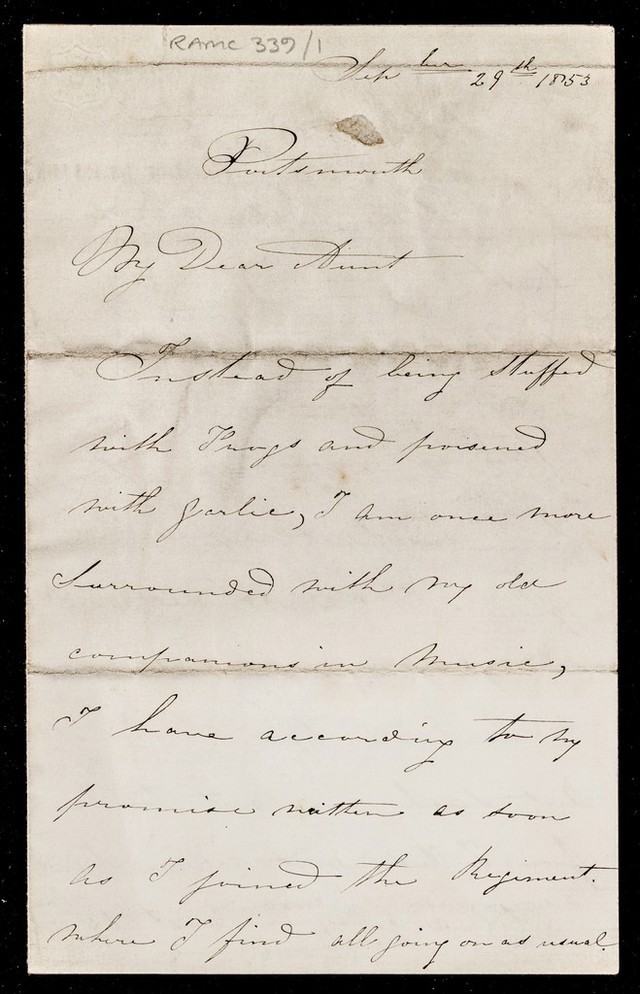 RAMC 339/1
Sepber 29th 1853
Portsmouth
My Dear Aunt
Instead of being stuffed
with Frogs and poisened
with garlic, I am once more
surrounded with my old
companions in Music,
I have according to my
promise written as soon
as I joined the Regiment.
where I find all going on as usual.